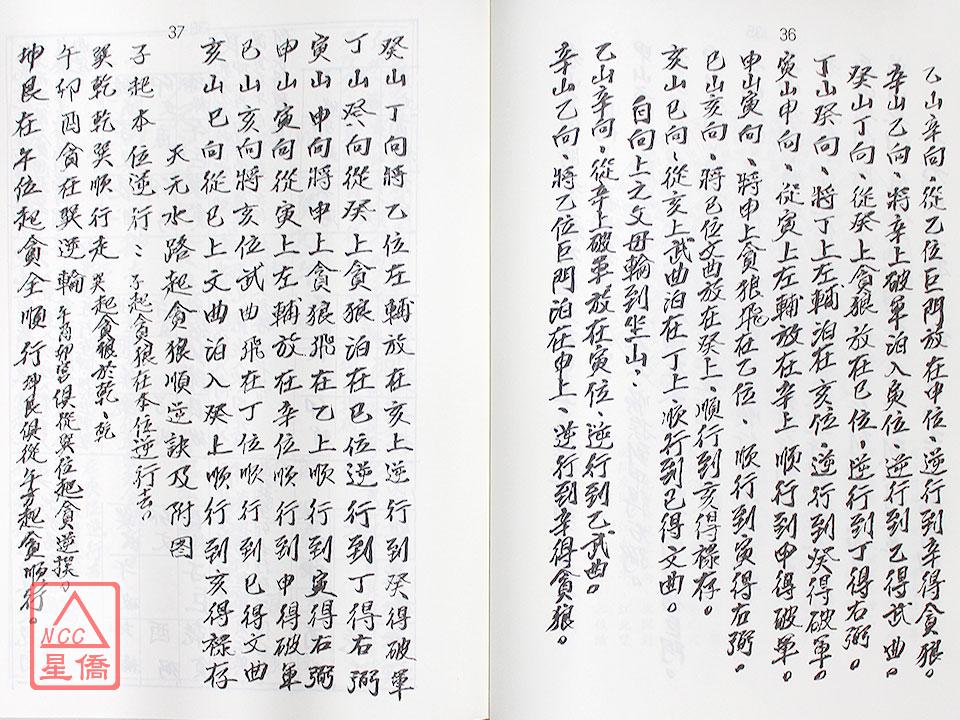 36
乙山辛向、從乙位巨門放在申位、逆行到辛得貪狼。
辛山乙向、將辛上破軍泊入寅位、逆行到乙得武曲。
癸山丁向、從癸上貪狼放在巳位、逆行到丁得右弼。
丁山癸向、將丁上左輔泊在亥位、逆行到癸得破軍。
寅山申向、從寅上左輔放在辛上順行到申得破軍。
申山寅向、將申上貪狼飛在乙位、順行到寅得右弼。
巳山亥向、將巳位文曲放在癸上、順行到亥得祿存。
亥山巳向、從亥上武曲泊在丁上、順行到巳得文曲。
自向上之父母輪到坐山：
乙山辛向、從辛上破軍放在寅位、逆行到乙武曲。
辛山乙向、將乙位巨門泊在申上、逆行到辛得貪狼。
37
癸山丁向將乙位左輔放在亥上逆行到癸得破軍
丁山癸向從癸上貪狼泊在巳位逆行到丁得右弼
寅山申向將申上貪狼飛在乙上順行到寅得右弼
申山寅向從寅上左輔放在辛位順行到申得破軍
巳山亥向將亥位武曲飛在丁位順行到巳得文曲
亥山巳向從巳上文曲泊入癸上順行到亥得祿存
天元水路起貪狼順逆訣及附图
子起本位逆行：子起貪狼在本位逆行去。
巽乾乾巽順行走 巽起貪狼於乾、乾
午卯酉貪在巽逆輪 午酉卯宮俱從巽位起貪逆挨。
坤艮在午位起貪全順行 坤艮俱從午方起貪順行。
NCC
星僑